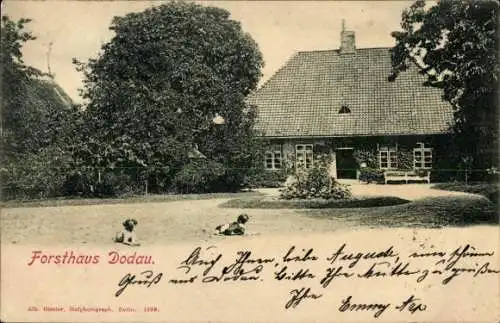 Forsthaus Dodau.
Auch Ihnen, liebe Auguste, einen schönen
Gruß aus Dodau. Bitte Ihre Mutter auch zu grüßen
Ihre
Emmy
Hofphotograph. Eutin. 1898.